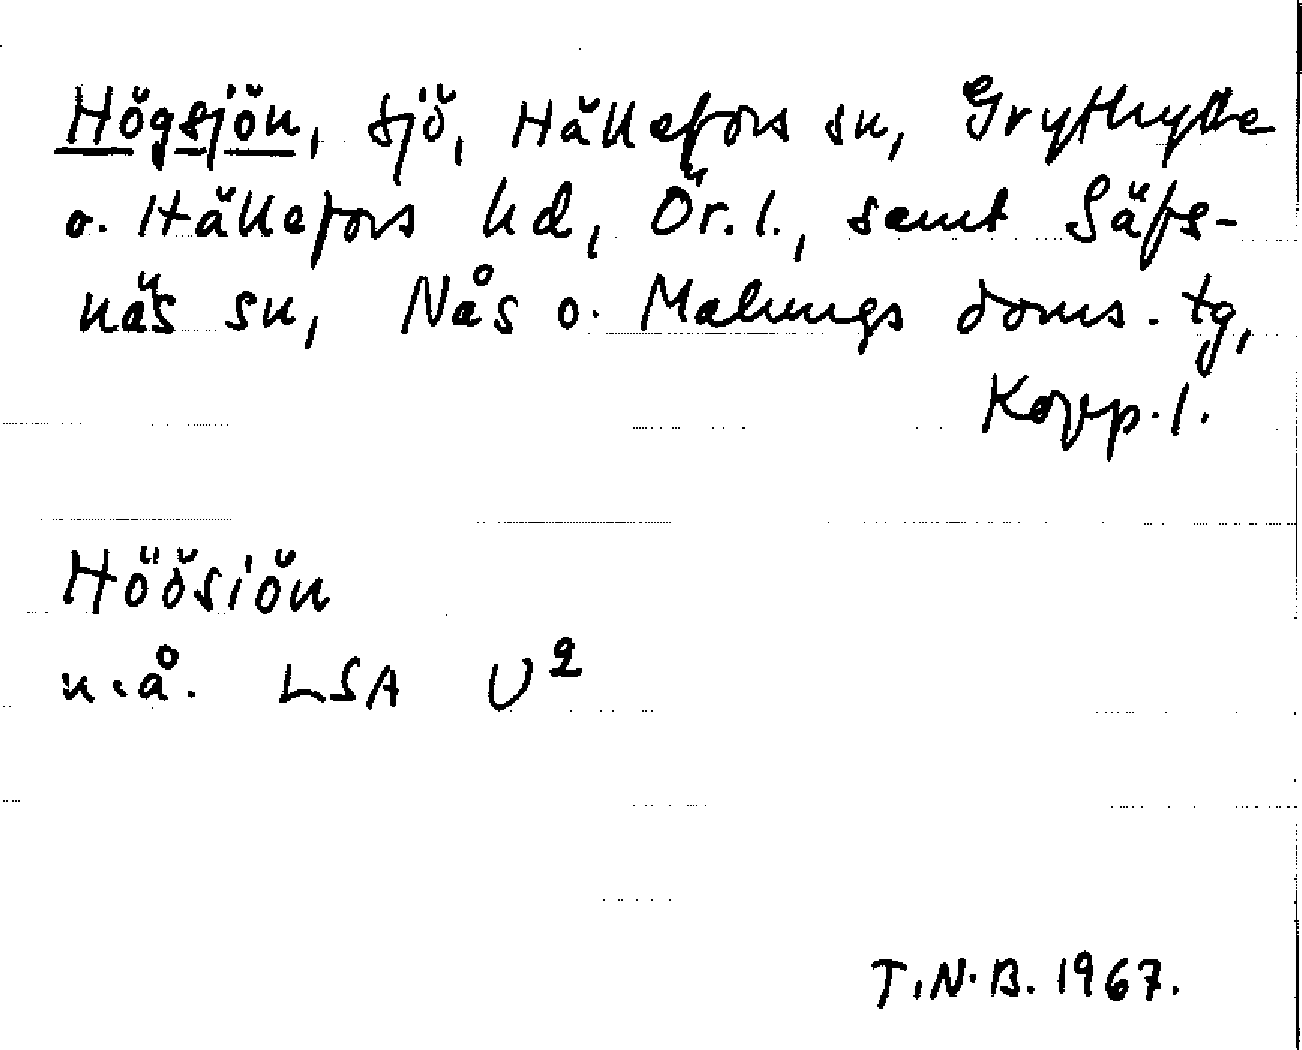 Högsjön, sjö, Hällefors sn, Grythytte
o. Hällefors hd, Ör. l., samt Säfs-
näs sn, Nås o. Malungs doms. tg,
Kopp. l.
Höösiön
n.å. LSA U²
T.N.B. 1967.